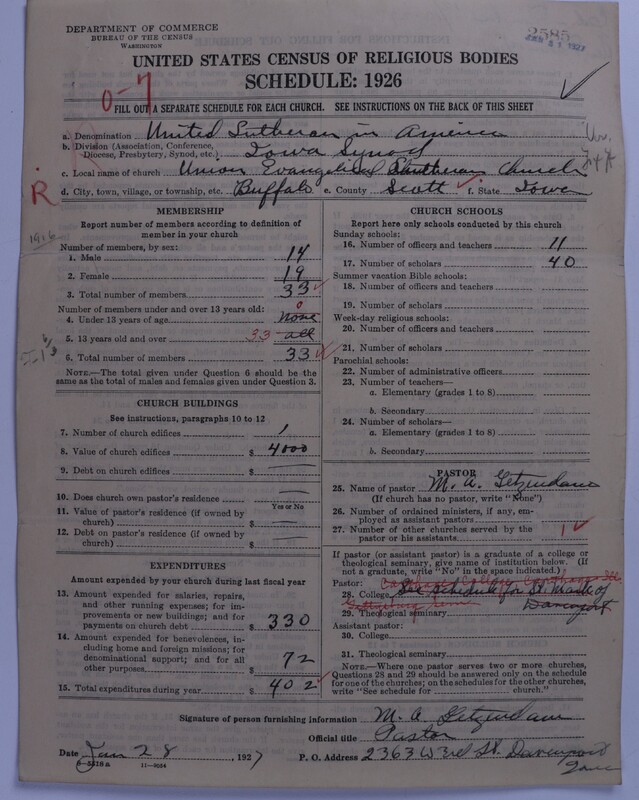 DEPARTMENT OF COMMERCE
BUREAU OF THE CENSUS
WASHINGTON
2585
JAN 31 1927
UNITED STATES CENSUS OF RELIGIOUS BODIES
SCHEDULE: 1926
0-7
FILL OUT A SEPARATE SCHEDULE FOR EACH CHURCH. SEE INSTRUCTIONS ON THE BACK OF THIS SHEET
a. Denomination United Lutheran in America
b. Division (Association, Conference, Diocese, Presbytery, Synod, etc.) Iowa Synod
c. Local name of church Union Evangelical Lutheran Church
R
d. City, town, village, or township, etc. Buffalo e. County Scott f. State Iowa
MEMBERSHIP
Report number of members according to definition of member in your church
1916
Number of members, by sex:
1. Male 14
2. Female 19
3. Total number of members 33
Number of members under and over 13 years old:
0
4. Under 13 years of age none
5. 13 years old and over 33 all
6. Total number of members 33
NOTE.—The total given under Question 6 should be the same as the total of males and females given under Question 3.
CHURCH BUILDINGS
See instructions, paragraphs 10 to 12
7. Number of church edifices 1
8. Value of church edifices $ 4000
9. Debt on church edifices $
10. Does church own pastor's residence
Yes or No
11. Value of pastor's residence (if owned by church) $
12. Debt on pastor's residence (if owned by church) $
EXPENDITURES
Amount expended by your church during last fiscal year
13. Amount expended for salaries, repairs, and other running expenses; for improvements or new buildings; and for payments on church debt $ 330
14. Amount expended for benevolences, including home and foreign missions; for denominational support; and for all other purposes $ 72
15. Total expenditures during year $ 402
CHURCH SCHOOLS
Report here only schools conducted by this church
Sunday schools:
16. Number of officers and teachers 11
17. Number of scholars 40
Summer vacation Bible schools:
18. Number of officers and teachers
19. Number of scholars
Week-day religious schools:
20. Number of officers and teachers
21. Number of scholars
Parochial schools:
22. Number of administrative officers
23. Number of teachers—
a. Elementary (grades 1 to 8)
b. Secondary
24. Number of scholars—
a. Elementary (grades 1 to 8)
b. Secondary
PASTOR
25. Name of pastor M. A. Getzendaner
(If church has no pastor, write "None")
26. Number of ordained ministers, if any, employed as assistant pastors
27. Number of other churches served by the pastor or his assistants 1
If pastor (or assistant pastor) is a graduate of a college or theological seminary, give name of institution below. (If not a graduate, write "No" in the space indicated.)
Pastor: Carthage College Carthage Ill.
28. College See schedule for St. Marks of
29. Theological seminary Davenport
Assistant pastor:
30. College
31. Theological seminary
NOTE.—Where one pastor serves two or more churches, Questions 28 and 29 should be answered only on the schedule for one of the churches; on the schedules for the other churches, write "See schedule for church."
Signature of person furnishing information M. A. Getzendaner
Official title Pastor
Date Jan 28, 1927 P. O. Address 2363 W 3rd St. Davenport
Iowa
8-5518 a 11-9034